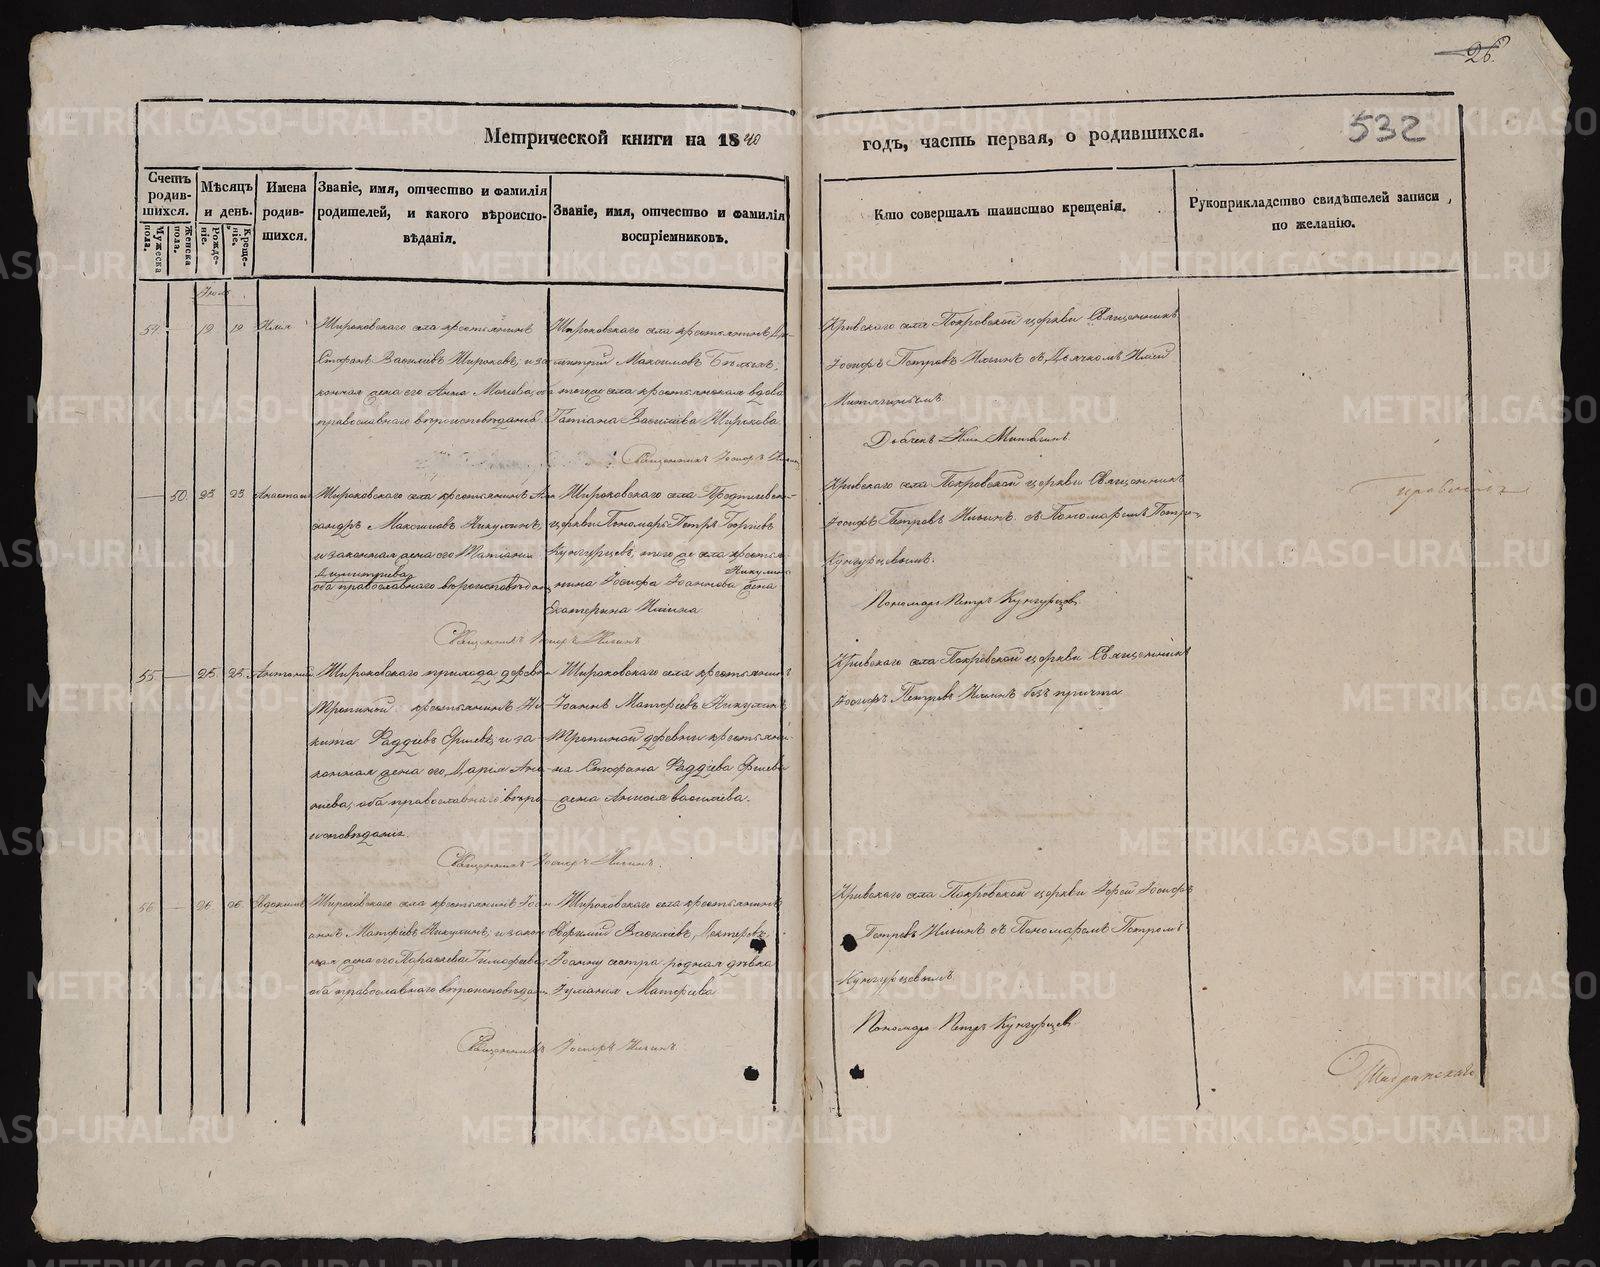 26.
532
Метрической книги на 1840
годъ, часть первая, о родившихся.
Счетъ родив-шихся.
Мужеска пола.
Женска пола.
Мѣсяцъ и день.
Рожде-ніе.
Креще-ніе.
Имена родив-шихся.
Званіе, имя, отчество и фамилія родителей, и какого вѣроиспо-вѣданія.
Званіе, имя, отчество и фамилія воспріемниковъ.
Кто совершалъ таинство крещенія.
Рукоприкладство свидѣтелей записи по желанію.
54
19
19
Илія
Широковскаго села крестьянинъ
Стефанъ Василіевъ Широковъ, и за
конная жена его Анна
православнаго вѣроисповѣданія
Широковскаго села крестьянинъ Ди
митрій Максимовъ
тогоже села крестьянская вдова
Татіана Василіева Широкова
Священникъ Іосифъ Ильинъ
Кривскаго села Покровской церкви Священникъ
Іосифъ Петровъ Ильинъ съ Дьячкомъ Иліей
50
25
25
Анастасія
Широковскаго села крестьянинъ Алек
сандръ Максимовъ Никулинъ
и законная жена его Татіана
Димитріева
оба православнаго вѣроисповѣданія
Широковскаго села Предтечевской
церкви Пономарь Петръ Георгіевъ
Кунгурцевъ, того же села крестья
Никулина
нина Іосифа Іоаннова жена
Екатерина Ильина
Священникъ Іосифъ Ильинъ
Кривскаго села Покровской церкви Священникъ
Іосифъ Петровъ Ильинъ съ Пономаремъ Петро
Кунгурцевымъ.
Пономарь Петръ Кунгурцевъ
55
25
25
Антоній
Широковскаго прихода деревни
Тропиной крестьянинъ Ни
кита Фаддѣевъ и за
конная жена его Марія Ана
ніева, оба православнаго вѣро
исповѣданія.
Широковскаго села крестьянинъ
Іоаннъ Матфѣевъ Никулинъ
Тропиной деревни крестьяни
на Стефана Фаддѣева
жена Анисія Василіева.
Священникъ Іосифъ Ильинъ.
Кривскаго села Покровской церкви Священникъ
Іосифъ Петровъ Ильинъ безъ причта
56
26
26
Евдокимъ
Широковскаго села крестьянинъ Іоан
нъ Матфѣевъ Никулинъ, и закон
ная жена его Параскева Тимофеева
оба православнаго вѣроисповѣданія
Широковскаго села крестьянинъ
Василіевъ
Іоанну сестра родная дѣвка
Матфѣева
Священникъ Іосифъ Ильинъ.
Кривскаго села Покровской церкви Іерей Іосифъ
Петровъ Ильинъ съ Пономаремъ Петромъ
Кунгурцевымъ
Пономарь Петръ Кунгурцевъ
Шадринскаго
METRIKI.GASO-URAL.RU